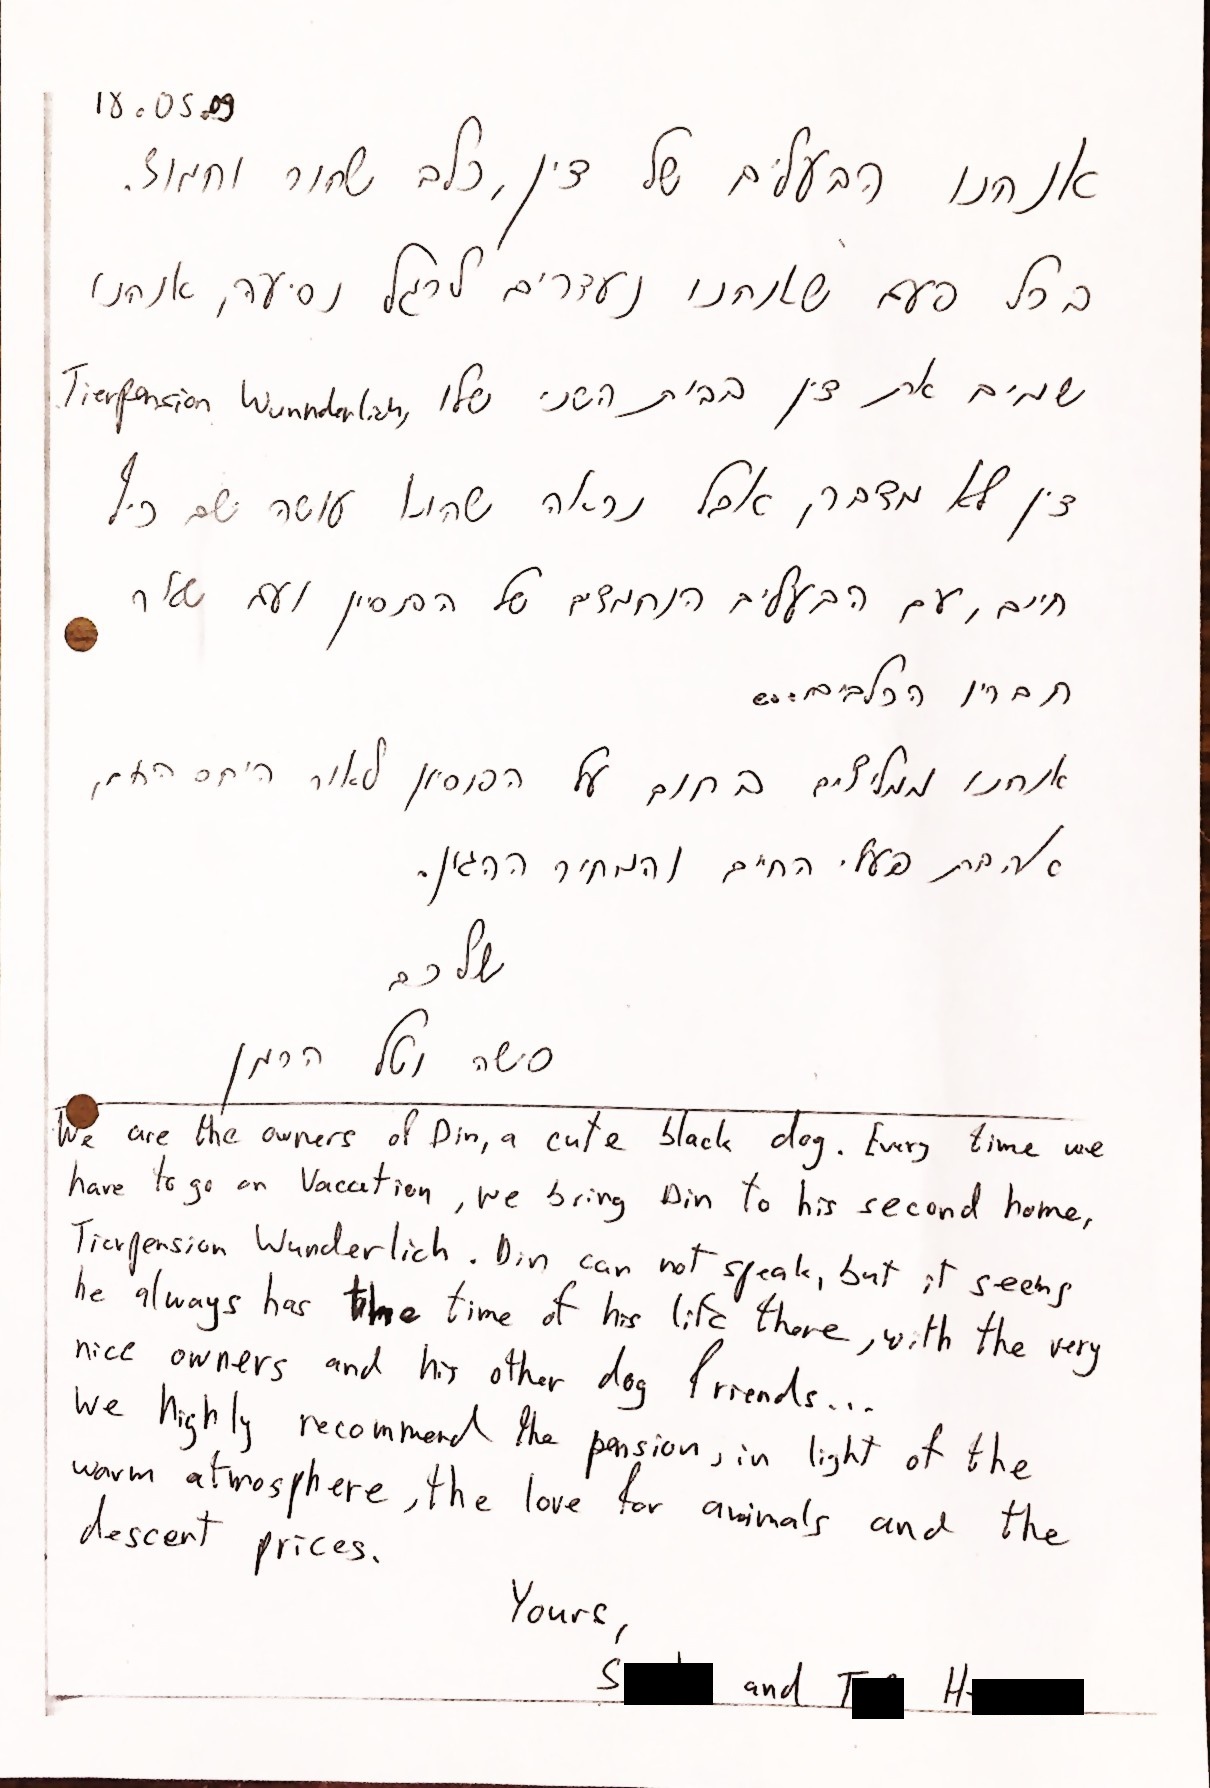 18.05.09
אנחנו הבעלים של דין, כלב שחור וחמוד.
בכל פעם שאנחנו נעדרים לרגל נסיעה, אנחנו
שמים את דין בבית השני שלו Tierpension Wunnderlich,
דין לא מדבר, אבל נראה שהוא עושה שם כיף
חיים, עם הבעלים הנחמדים של הפנסיון ועם שאר
חבריו הכלבים...
אנחנו ממליצים בחום על הפנסיון לאור היחס החם,
אהבת בעלי החיים והמחיר ההגון.
שלכם
סשה וטל הרמן
We are the owners of Din, a cute black dog. Every time we
have to go on Vaccation, we bring Din to his second home,
Tierpension Wunderlich. Din can not speak, but it seems
he always has the time of his life there, with the very
nice owners and his other dog friends...
We highly recommend the pension, in light of the
warm atmosphere, the love for animals and the
descent prices.
Yours,
S and T H